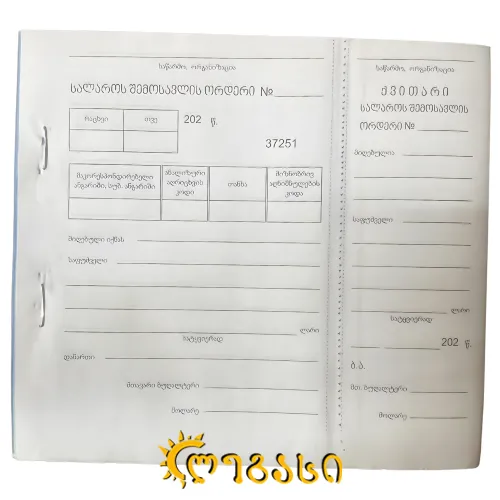 საწარმო, ორგანიზაცია
ᲡᲐᲚᲐᲠᲝᲡ ᲨᲔᲛᲝᲡᲐᲕᲚᲘᲡ ᲝᲠᲓᲔᲠᲘ №
რიცხვი თვე 202 წ.
37251
მაკორესპონდირებელი ანგარიში, სუბ. ანგარიში
ანალიზური აღრიცხვის კოდი
თანხა
მიზნობრივ აღნიშნულების კოდი
მიღებული იქნას
საფუძველი
ლარი
სიტყვიერად
დანართი
მთავარი ბუღალტერი
მოლარე
საწარმო, ორგანიზაცია
ᲥᲕᲘᲗᲐᲠᲘ
ᲡᲐᲚᲐᲠᲝᲡ ᲨᲔᲛᲝᲡᲐᲕᲚᲘᲡ
ᲝᲠᲓᲔᲠᲘ №
მიღებულია
საფუძველი
ლარი
სიტყვიერად
202 წ.
ბ.ა.
მთ. ბუღალტერი
მოლარე
ლეგასი